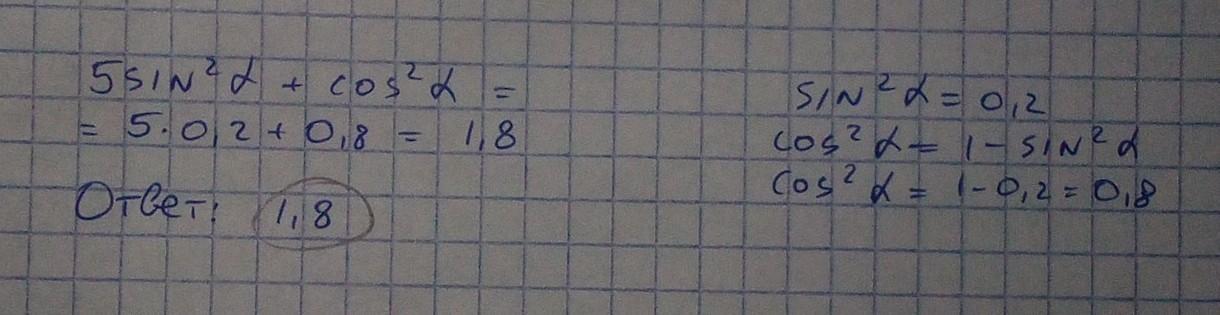 5sin²α + cos²α =
= 5·0,2 + 0,8 = 1,8
Ответ: 1,8
sin²α = 0,2
cos²α = 1 - sin²α
cos²α = 1 - 0,2 = 0,8